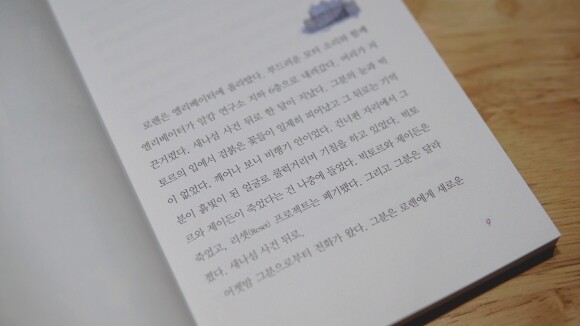 모렌은 엘리베이터에 올라탔다. 부드러운 모터 소리와 함께
엘리베이터가 알람 연구소 지하 6층으로 내려갔다. 머리가 지
끈거렸다. 새나섬 사건 뒤로 한 달이 지났다. 그분의 눈과 빅
토르의 입에서 검붉은 꽃들이 일제히 피어났고 그 뒤로는 기억
이 없었다. 깨어나 보니 비행기 안이었다. 건너편 자리에서 그
분이 흙빛이 된 얼굴로 쿨럭거리며 기침을 하고 있었다. 빅토
르와 제이든이 죽었다는 건 나중에 들었다. 빅토르와 제이든은
죽었고, 리셋(Reset) 프로젝트는 폐기됐다. 그리고 그분은 달라
졌다. 새나섬 사건 뒤로.
어젯밤 그분으로부터 전화가 왔다. 그분은 모렌에게 새로운
9